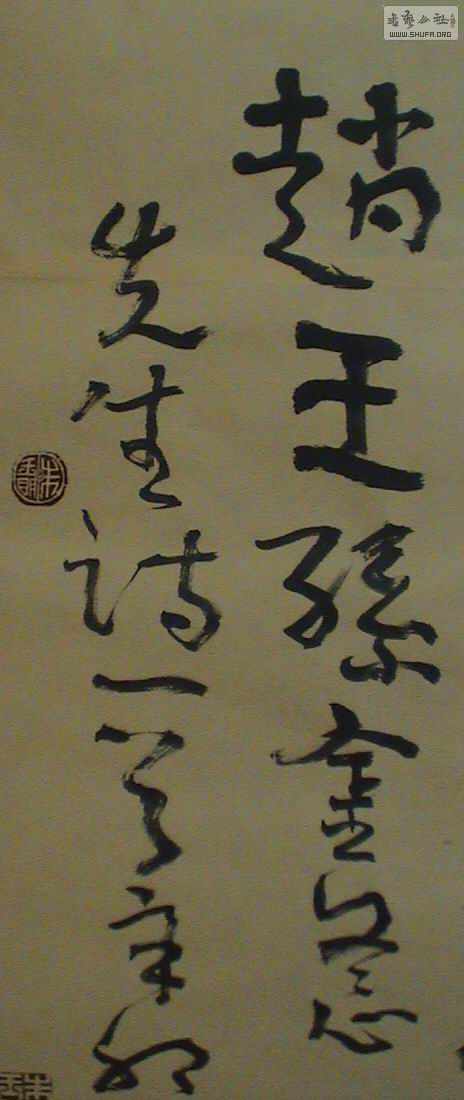 書藝公社
WWW.SHUFA.ORG
趙王孫金
先生詩一首辛卯